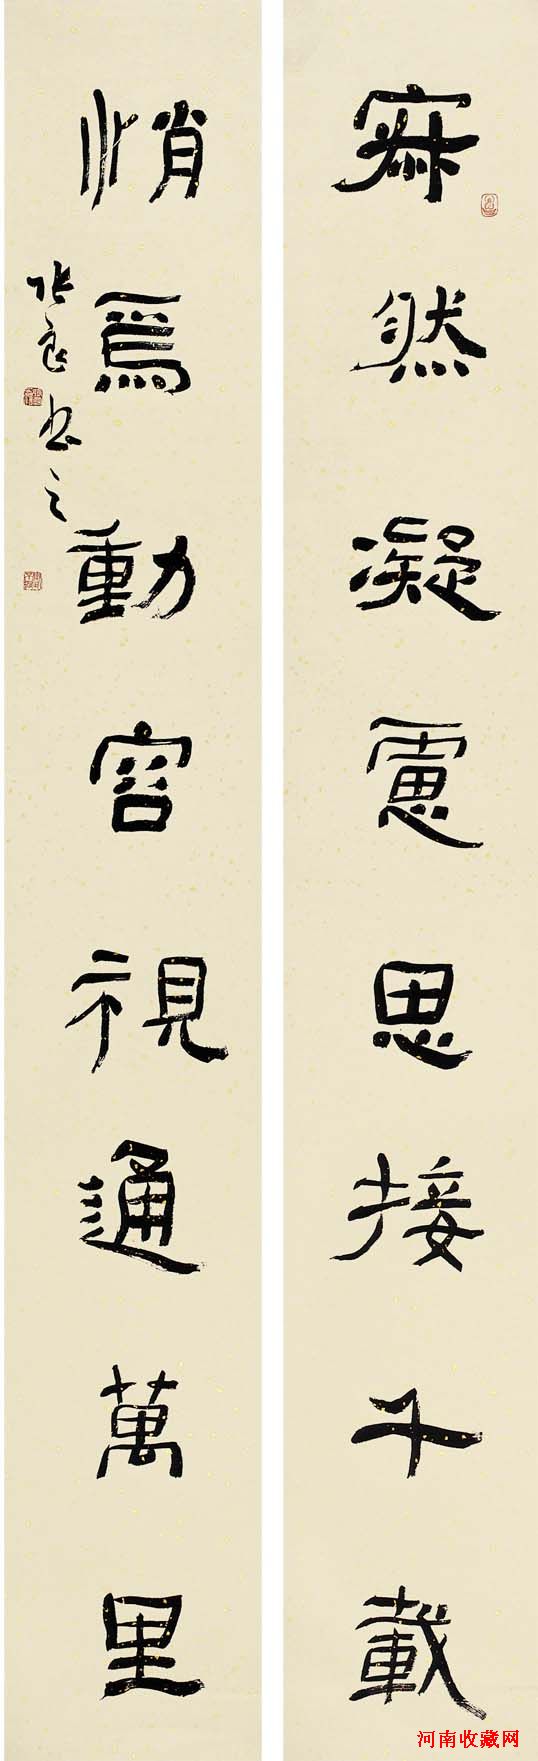 寂然凝慮思接千載
悄焉動容視通萬里
河南收藏网